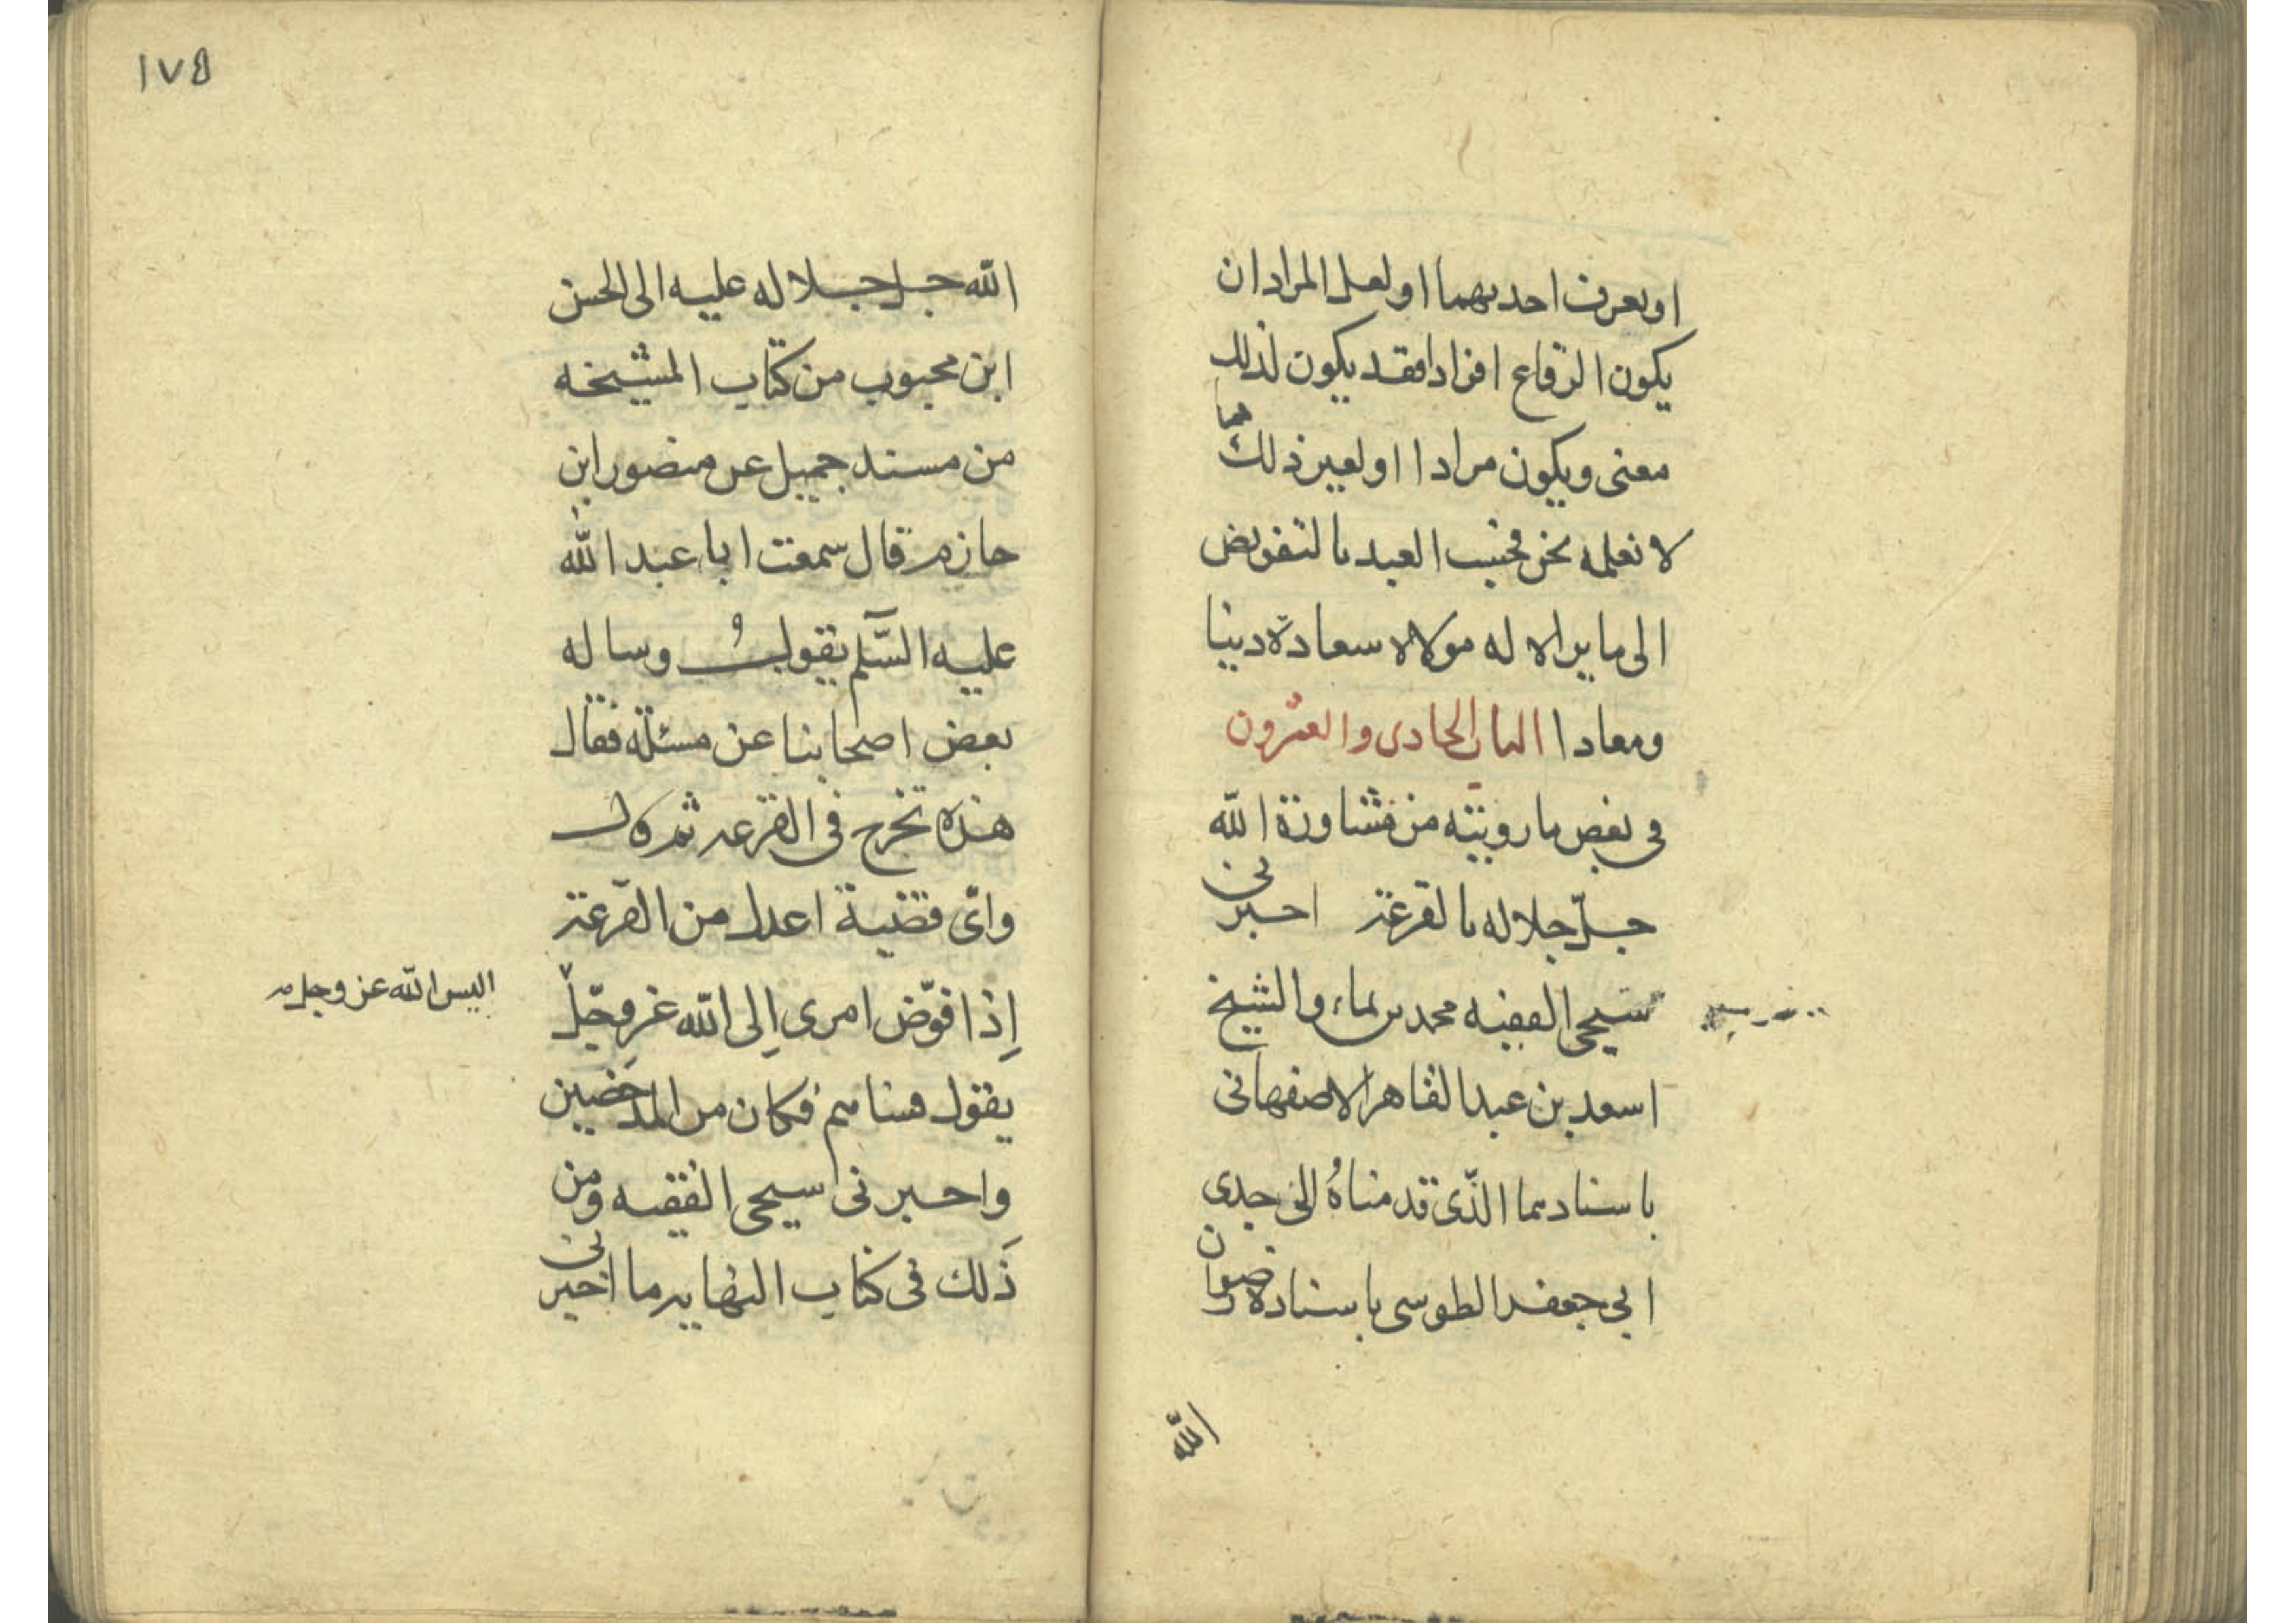 او يعرف احديهما او لعل المراد ان
يكون الرقاع افرادا فقد يكون لذلك
معنى ويكون مرادا او لغير ذلك مما
لا نعلمه نحن فحسب العبد بالتفويض
الى ما يراه له مولاه سعادة دينا
ومعادا الباب الحادى والعشرون
فى بعض ما رويته من مشاورة الله
جلّ جلاله بالقرعة اخبرنى
شيخى الفقيه محمد بن نماء والشيخ
اسعد بن عبد القاهر الاصفهانى
باسنادهما الذّى قدمناه الى جدى
ابى جعفر الطوسى باسناده رضوان
الله
١٧٥
الله جل جلاله عليه الى الحسن
ابن محبوب من كتاب المشيخه
من مسند جميل عن منصور ابن
حازم قال سمعت ابا عبد الله
عليه السّلم يقول وساله
بعض اصحابنا عن مسئلة فقال
هذه تخرج فى القرعه ثم قال
واىّ قضية اعدل من القرعة
إذا فوّض امرى إلى الله عز وجلّ
اليس الله عز وجل
يقول فساهم فكان من المدحضين
واخبرنى شيخى الفقيه ومن
ذلك فى كتاب النهايه ما اخبرنى